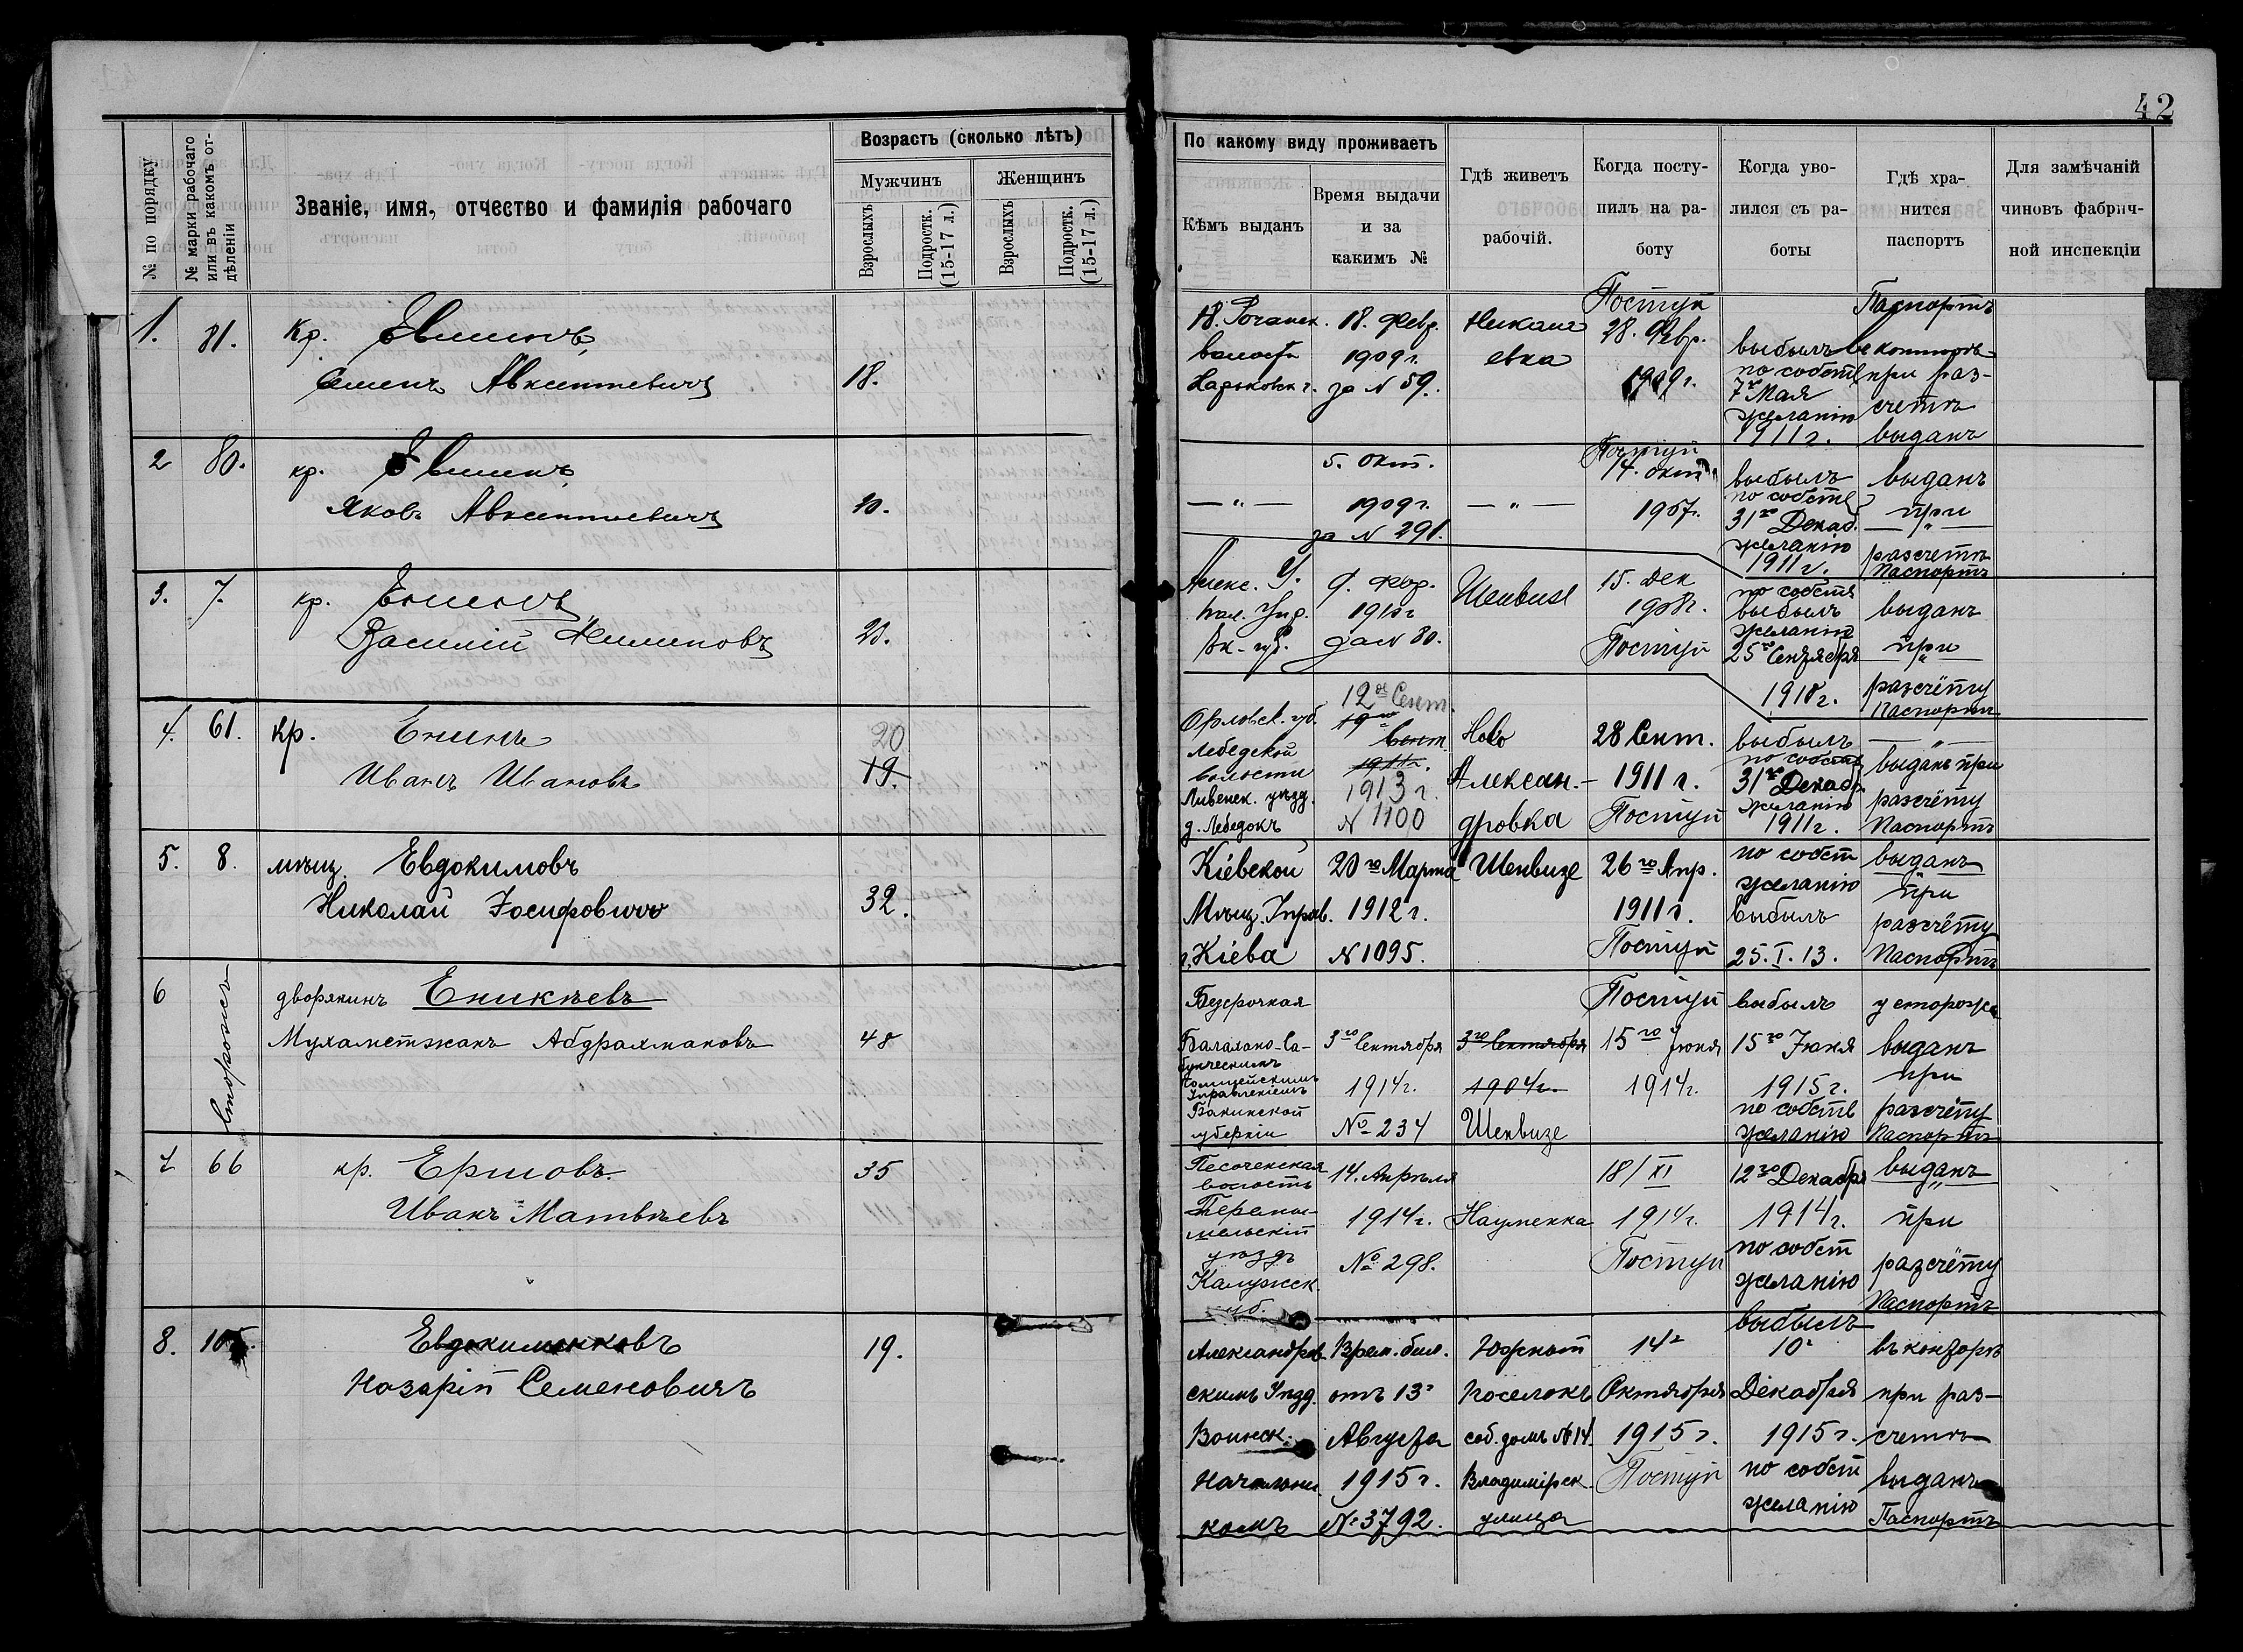 42
№ по порядку
№ марки рабочаго или въ какомъ отдѣленіи
Званіе, имя, отчество и фамилія рабочаго
Возрастъ (сколько лѣтъ)
Мужчинъ
Женщинъ
Взрослыхъ
Подростк. (15-17 л.)
Взрослыхъ
Подростк. (15-17 л.)
По какому виду проживаетъ
Кѣмъ выданъ
Время выдачи
и за
какимъ №
Гдѣ живетъ
рабочій.
Когда посту-
пилъ на ра-
боту
Когда уво-
лился съ ра-
боты
Гдѣ хра-
нится
паспортъ
Для замѣчаній
чиновъ фабрич-
ной инспекціи
1.
81.
Кр.
Семенъ
18.
волости
Харьковск г.
18. Февр.
1909 г.
за № 59.
евка
Поступ
28. Февр.
1909 г.
выбылъ
по собств
7го Мая
желанію
1911 г.
Паспортъ
въ конторѣ
при раз-
счетѣ
выданъ
2
80.
кр.
Яковъ
— " —
5. Окт.
1909 г.
за № 291.
— " —
Поступ
14. окт
1907 г.
выбылъ
по собств
31го Декаб.
желанію
1911 г.
выданъ
при
— " —
разсчетѣ
Паспортъ
3.
7.
кр.
Василій Филиповъ
Алекс. У.
1910 г
за № 80.
Шенвизе
15. Дек
1908 г.
Поступ
по собств
выбылъ
желанію
25го Сентября
1910 г.
выданъ
при
— " —
разсчёту
Паспортъ
4.
61.
кр.
Енинъ
Иванъ Ивановъ
20
19.
Орловск. губ.
Лебедской
волости
Ливенск. уѣзд.
д. Лебедокъ
12го Сент.
19го
Сент.
1911 г.
1913 г.
№ 1100
Ново
Алексан.-
дровка
28 Сент.
1911 г.
Поступ
выбылъ
по собств
31го Декаб
желанію
1911 г.
— " —
выданъ при
разсчёту
Паспортъ
5.
8.
мѣщ. Евдокимовъ
Николай Іосифовичъ
32.
Кіевской
Мѣщ. Управ.
г. Кіева
20го Марта
1912 г.
№ 1095.
Шенвизе
26го Апр.
1911 г.
Поступ
по собст
желанію
выбылъ
25. I. 13.
выданъ
"
при
разсчёту
Паспортъ
6
Сторожъ
дворянинъ Еникѣевъ
Мухаметжанъ Абдрахмановъ
48
Безсрочная
Балахано-Са-
бунческимъ
Полицейскимъ
Управленіемъ
Бакинской
губерніи
3го Сентября
1914 г.
№ 234
3го Сентября
1904 г.
Шенвизе
Поступ
15го Іюня
1914 г.
выбылъ
15го Іюня
1915 г.
по собств
желанію
у сторожа
выданъ
при
разсчёту
Паспортъ
7
66
кр. Ершовъ
Иванъ Матвѣевъ
35
Песоченская
волость
Перемы-
шльскій
уѣздъ
Калужск.
губ.
14. Апрѣля
1914 г.
№ 298.
Науменка
18/XI
1914 г.
Поступ
12го Декабря
1914 г.
по собст
желанію
выбылъ
выданъ
"
при
разсчёту
Паспортъ
8.
Евдокименковъ
Назарій Семеновичъ
19.
Александров-
скимъ Уѣзд.
Воинск.
Начальни-
комъ
Врем. бил.
отъ 13го
Августа
1915 г.
№ 3792.
Южный
поселокъ
соб. домъ № 14.
Владимірск.
улица
14го
Октября
1915 г.
Поступ
10го
Декабря
1915 г.
по собст
желанію
въ конторѣ
при раз-
счетѣ
выданъ
Паспортъ